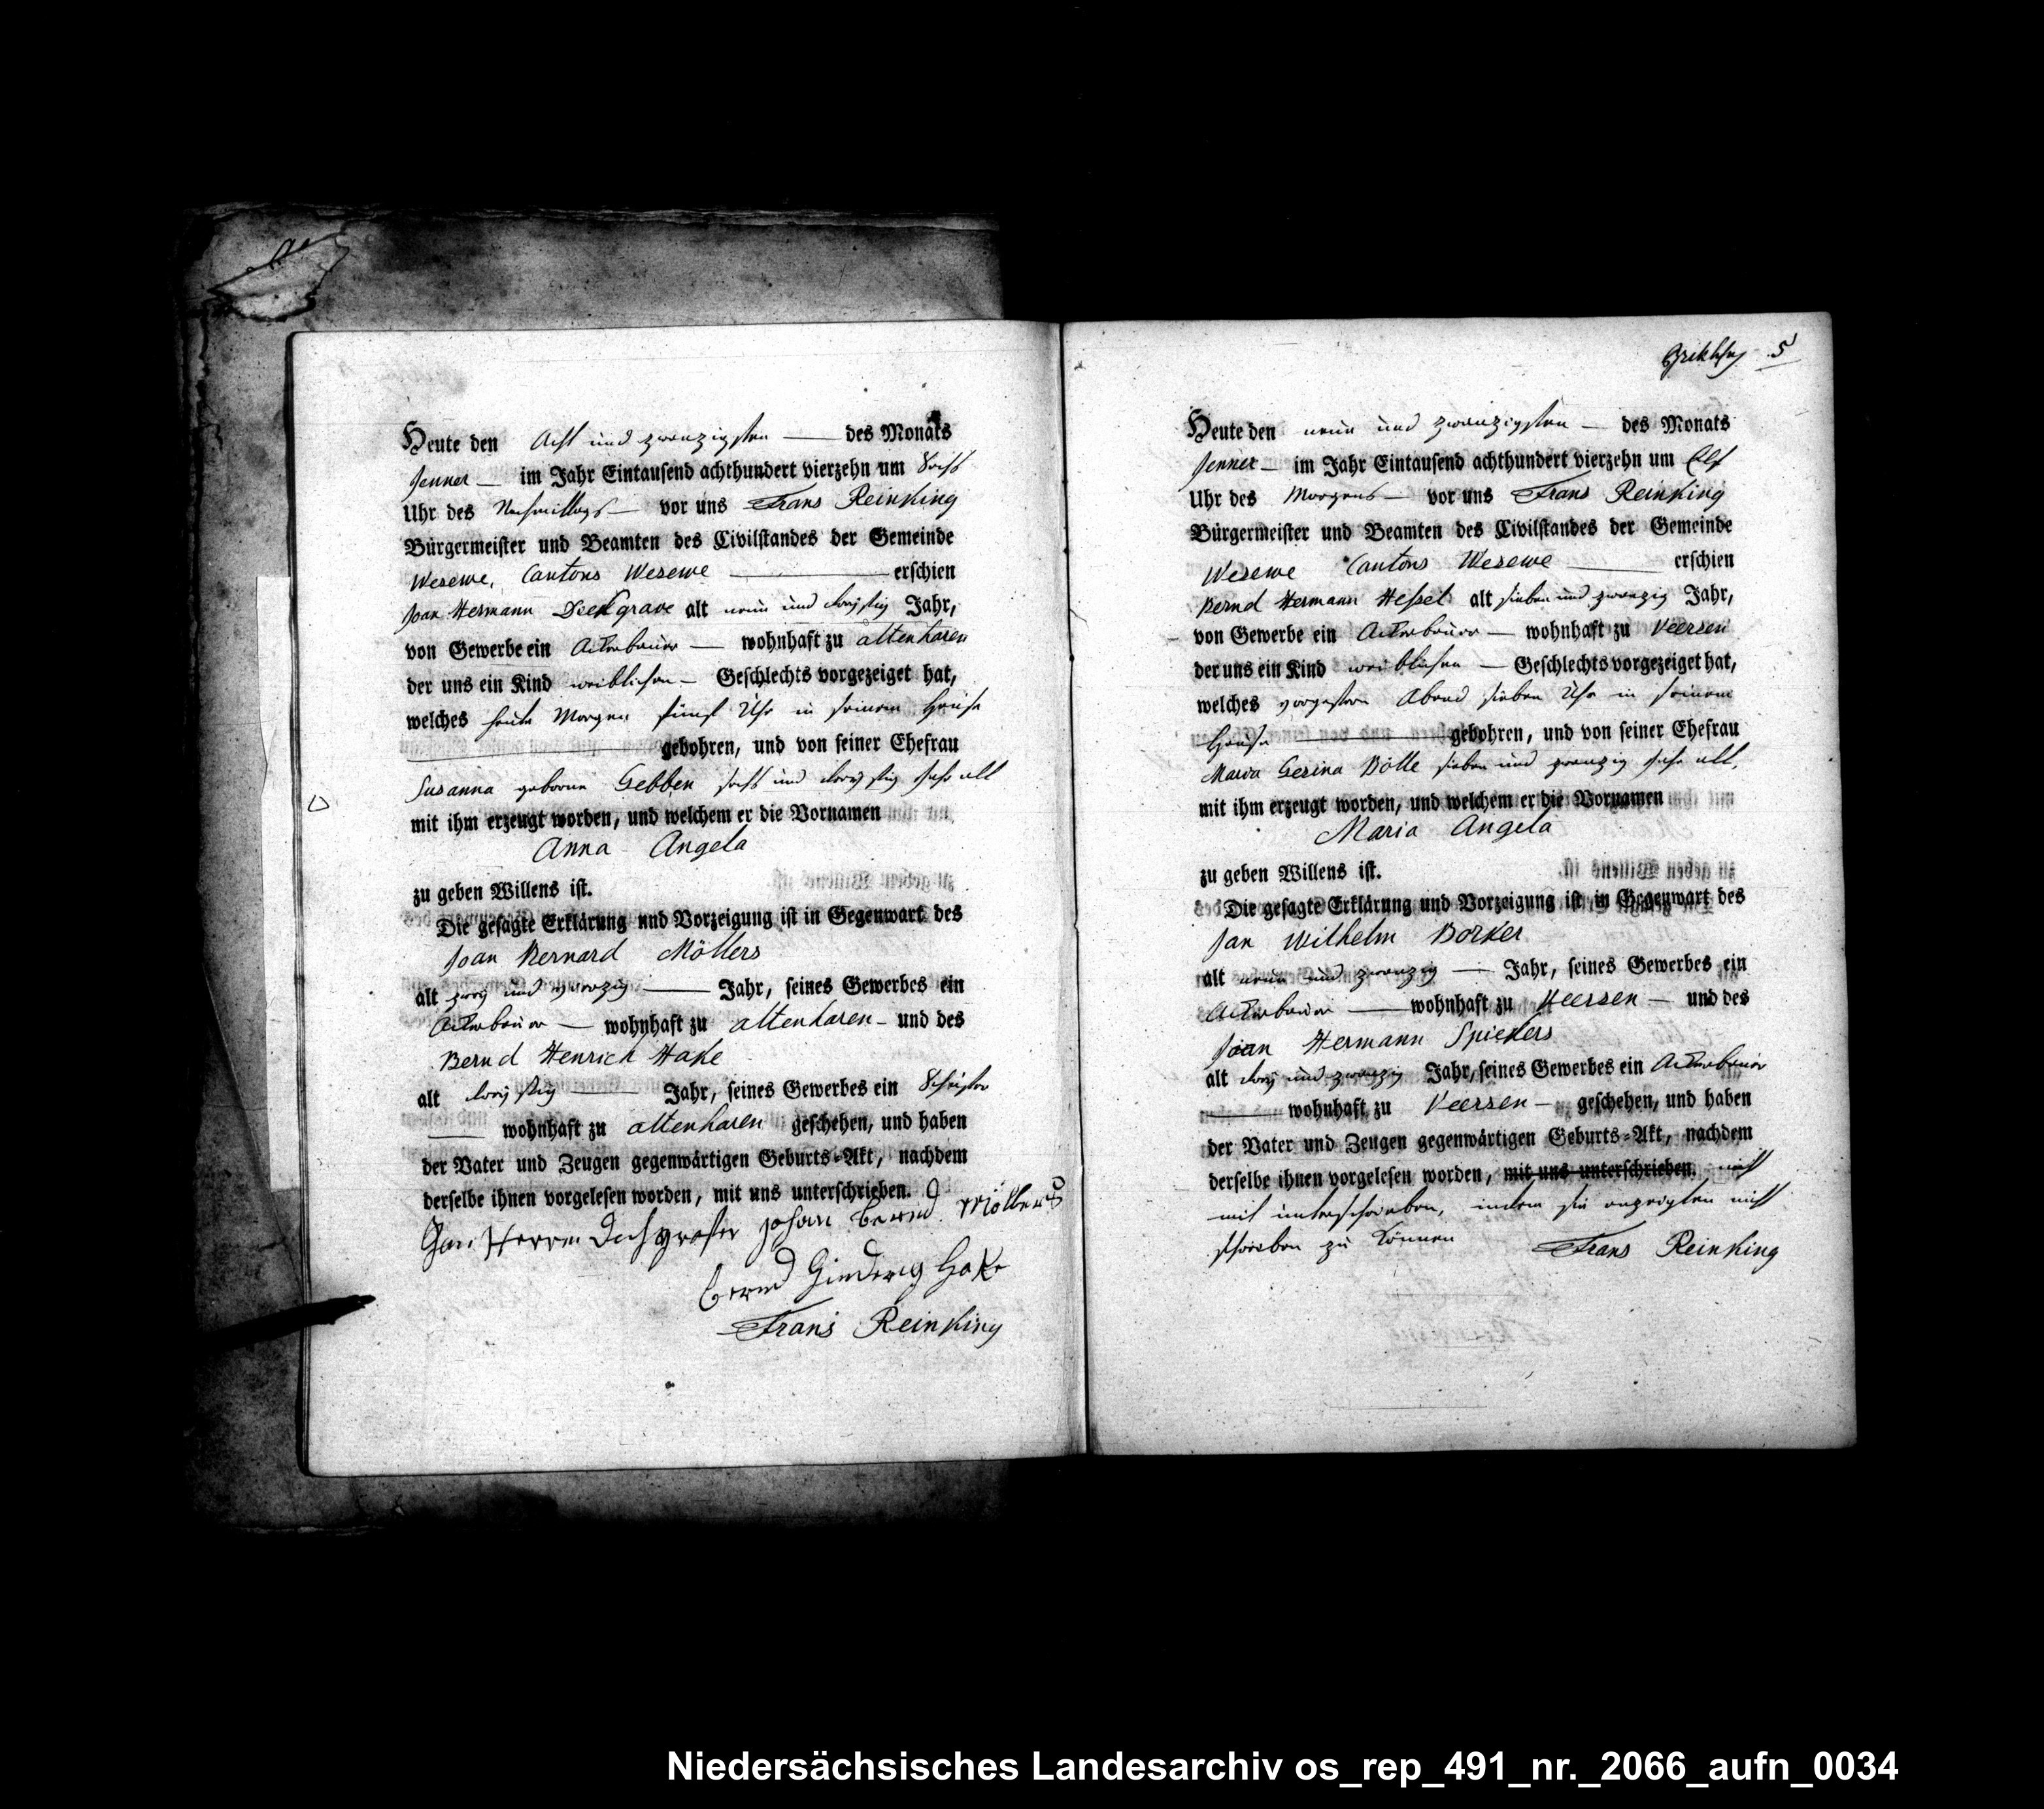 Heute den Acht und zwanzigsten — des Monats
Jenner — im Jahr Eintausend achthundert vierzehn um Sechs
Uhr des Nachmittags — vor uns Frans Reinking
Bürgermeister und Beamten des Civilstandes der Gemeinde
Wesewe, Cantons Wesewe — erschien
Joan Hermann Deekgrave alt neun und dreyßig Jahr,
von Gewerbe ein Ackerbauer — wohnhaft zu altenharen
der uns ein Kind weiblichen — Geschlechts vorgezeiget hat,
welches heute Morgen fünf Uhr in seinem Hause
— gebohren, und von seiner Ehefrau
Susanna geborne Gebben sechs und dreyßig Jahr alt
mit ihm erzeugt worden, und welchem er die Vornamen
Anna Angela
zu geben Willens ist.
Die gesagte Erklärung und Vorzeigung ist in Gegenwart des
Joan Bernard Möllers
alt zwey und vierzig — Jahr, seines Gewerbes ein
Ackerbauer — wohnhaft zu altenharen — und des
Bernd Henrich Hake
alt dreyßig — Jahr, seines Gewerbes ein Schuster
— wohnhaft zu altenharen geschehen, und haben
der Vater und Zeugen gegenwärtigen Geburts-Akt, nachdem
derselbe ihnen vorgelesen worden, mit uns unterschrieben.
Johan Bernd Möllers
Bernd Hinderig Hake
Frans Reinking
5
Heute den neun und zwanzigsten — des Monats
Jenner — im Jahr Eintausend achthundert vierzehn um Elf
Uhr des Morgens — vor uns Frans Reinking
Bürgermeister und Beamten des Civilstandes der Gemeinde
Wesewe Cantons Wesewe — erschien
Bernd Hermann Hessel alt sieben und zwanzig Jahr,
von Gewerbe ein Ackerbauer — wohnhaft zu Veersen
der uns ein Kind weiblichen — Geschlechts vorgezeiget hat,
welches vorgestern Abend sieben Uhr in seinem
Hause — gebohren, und von seiner Ehefrau
Maria Gesina Bölle sieben und zwanzig Jahr alt,
mit ihm erzeugt worden, und welchem er die Vornamen
Maria Angela
zu geben Willens ist.
Die gesagte Erklärung und Vorzeigung ist in Gegenwart des
Jan Wilhelm Borker
alt neun und zwanzig — Jahr, seines Gewerbes ein
Ackerbauer — wohnhaft zu Veersen — und des
Joan Hermann Spiekers
alt drey und zwanzig Jahr, seines Gewerbes ein Ackerbauer
— wohnhaft zu Veersen — geschehen, und haben
der Vater und Zeugen gegenwärtigen Geburts-Akt, nachdem
derselbe ihnen vorgelesen worden, mit uns unterschrieben. nicht
mit unterschrieben, indem sie anzeigten nicht
schreiben zu können Frans Reinking
Niedersächsisches Landesarchiv os_rep_491_nr._2066_aufn_0034